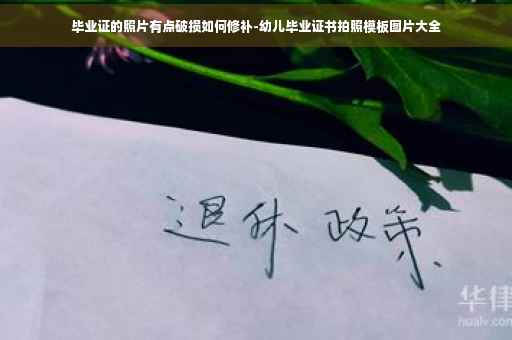 毕业证的照片有点破损如何修补-幼儿毕业证书拍照模板图片大全
退休 政策
华律
hualv.com